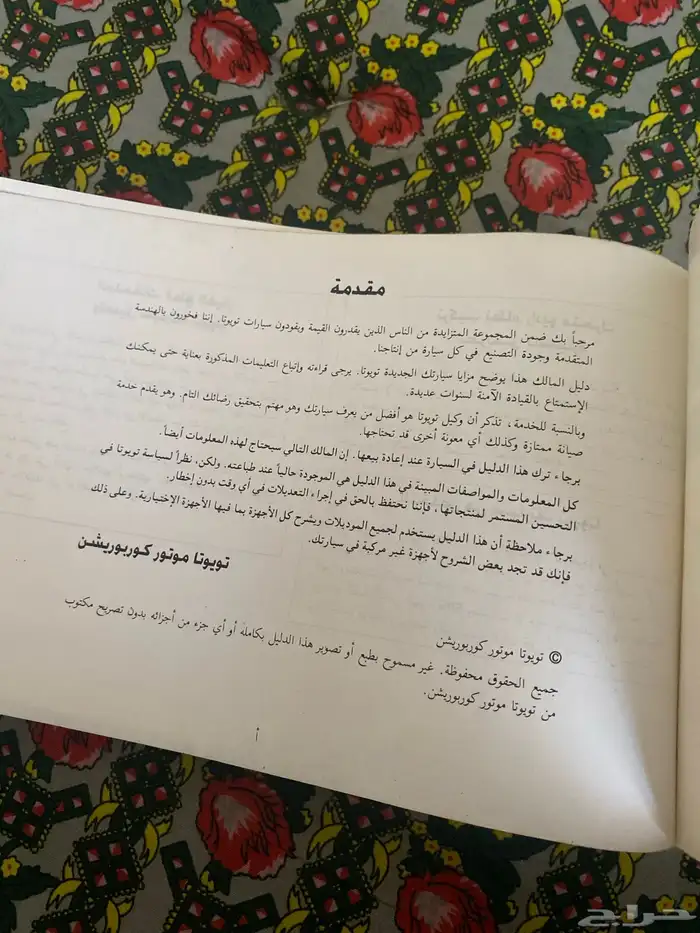 مقدمة
مرحباً بك ضمن المجموعة المتزايدة من الناس الذين يقدرون القيمة ويقودون سيارات تويوتا. إننا فخورون بالهندسة
المتقدمة وجودة التصنيع في كل سيارة من إنتاجنا.
دليل المالك هذا يوضح مزايا سيارتك الجديدة تويوتا. يرجى قراءته وإتباع التعليمات المذكورة بعناية حتى يمكنك
الإستمتاع بالقيادة الآمنة لسنوات عديدة.
وبالنسبة للخدمة، تذكر أن وكيل تويوتا هو أفضل من يعرف سيارتك وهو مهتم بتحقيق رضائك التام. وهو يقدم خدمة
صيانة ممتازة وكذلك أي معونة أخرى قد تحتاجها.
برجاء ترك هذا الدليل في السيارة عند إعادة بيعها. إن المالك التالي سيحتاج لهذه المعلومات أيضاً.
كل المعلومات والمواصفات المبينة في هذا الدليل هي الموجودة حالياً عند طباعته. ولكن، نظراً لسياسة تويوتا في
التحسين المستمر لمنتجاتها، فإننا نحتفظ بالحق في إجراء التعديلات في أي وقت بدون إخطار.
برجاء ملاحظة أن هذا الدليل يستخدم لجميع الموديلات ويشرح كل الأجهزة بما فيها الأجهزة الإختيارية. وعلى ذلك
فإنك قد تجد بعض الشروح لأجهزة غير مركبة في سيارتك.
تويوتا موتور كوربوريشن
© تويوتا موتور كوربوريشن
جميع الحقوق محفوظة. غير مسموح بطبع أو تصوير هذا الدليل بكامله أو أي جزء من أجزائه بدون تصريح مكتوب
من تويوتا موتور كوربوريشن.
أ
حراج